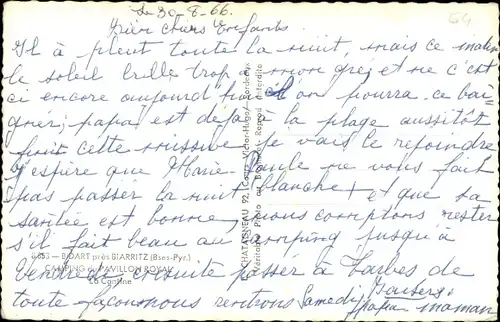 Le 30-8-66.
64
Bien chers Enfants
Il à pleut toute la nuit, mais ce matin
le soleil brille trop a mon gré, et ne c'est
ci encore aujourd'hui on pourra ce bai-
gner; papa est déja à la plage aussitôt
finit cette missive je vais le rejoindre
J'espère que Marie-Paule ne vous fait
pas passer la nuit blanche, et que sa
santée est bonne, nous comptons rester
s'il fait beau au camping jusqu'à
Vendredi ensuite passer à Tarbes de
toute façon nous rentrons Samedi, Baisers
papa maman
BIDART près BIARRITZ (Bses-Pyr.)
CAMPING du PAVILLON ROYAL
La Cantine
CHATAGNEAU 92, Cours Victor-Hugo, Bordeaux
Véritable Photo au Bromure - Reproduction Interdite